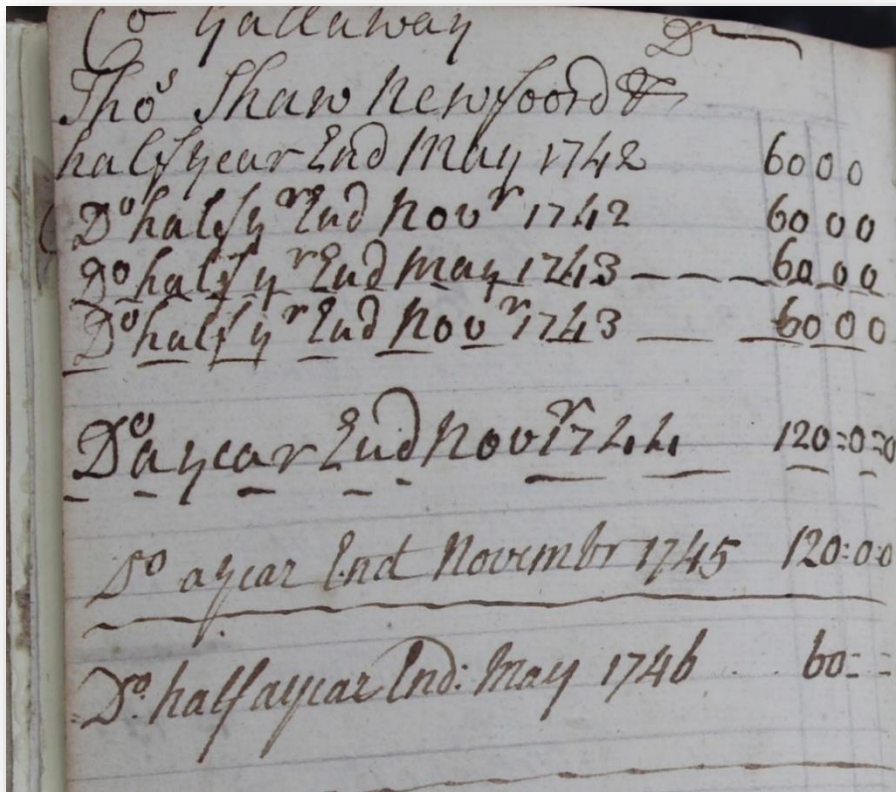 Co Gallaway Dr
Thos Shaw Newfoord &
half year End May 1742 60 0 0
Do half yr End Novr 1742 60 0 0
Do half yr End May 1743 60 0 0
Do half yr End Novr 1743 60 0 0
Do a year End Novr 1744 120=0=0
Do a year End Novembr 1745 120:0:0
Do: half a year End: May 1746 60= =